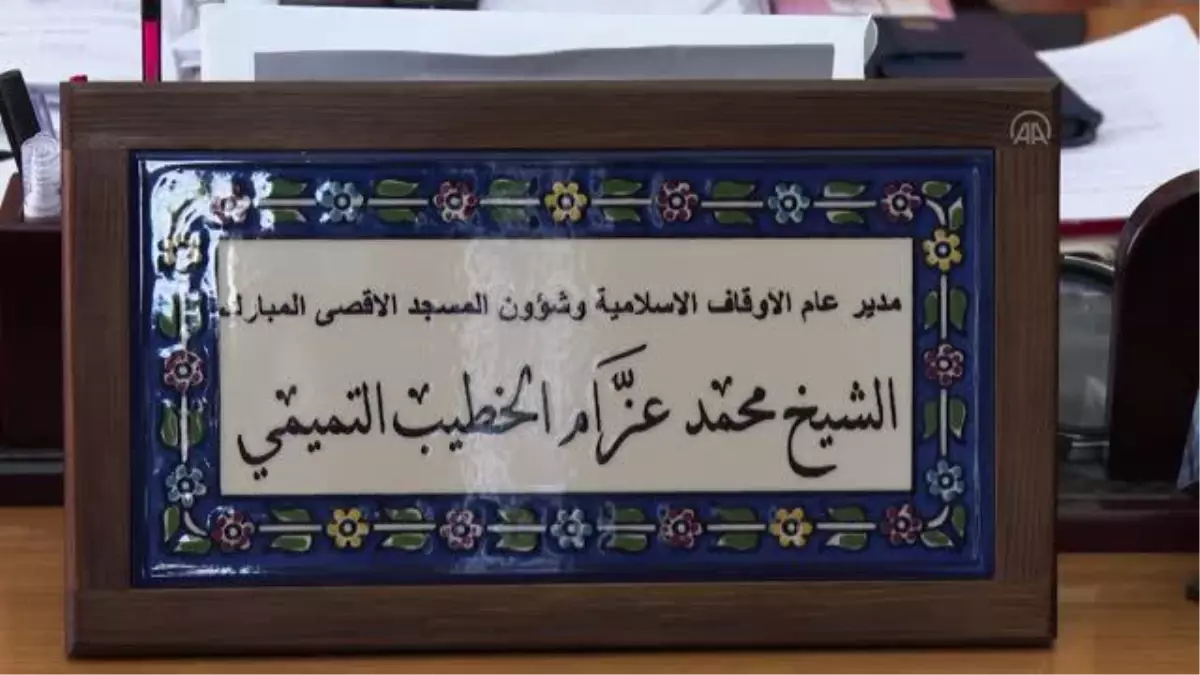 AA
مدير عام الأوقاف الاسلامية وشؤون المسجد الاقصى المبارك
الشيخ محمد عزَّام الخطيب التميمي